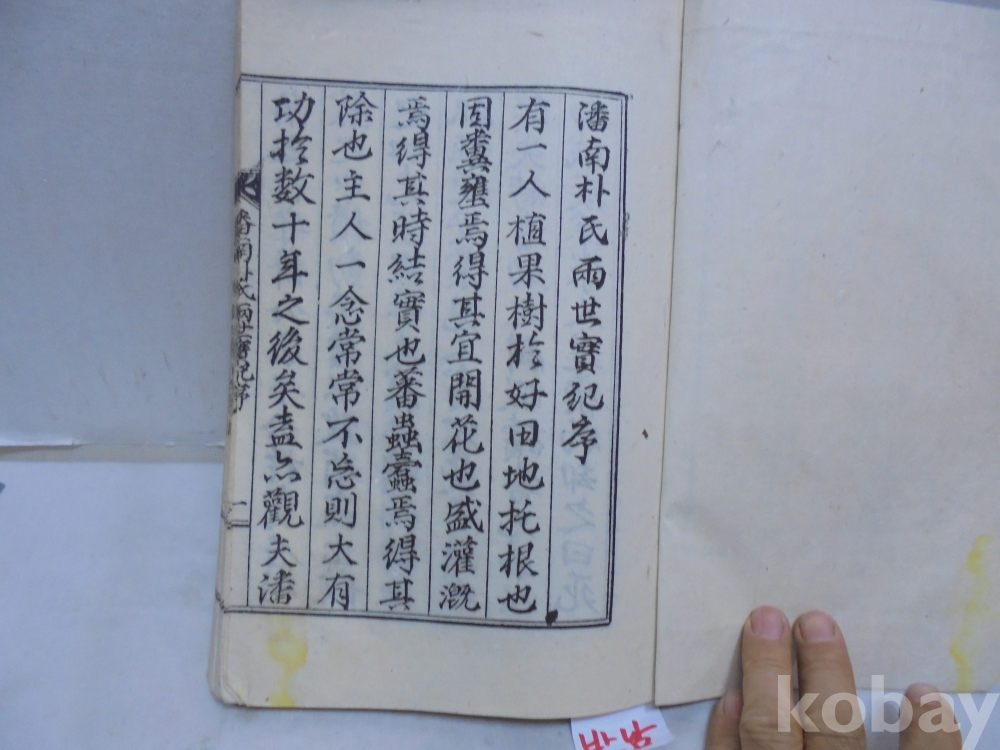 潘南朴氏兩世寶紀序
有一人植果樹於好田地托根也
固糞壅焉得其宜開花也盛灌漑
焉得其時結實也蕃蟲蠹焉得其
除也主人一念常常不忘則大有
功於數十年之後矣盍亦觀夫潘
潘南朴氏兩世寶紀序
一
kobay